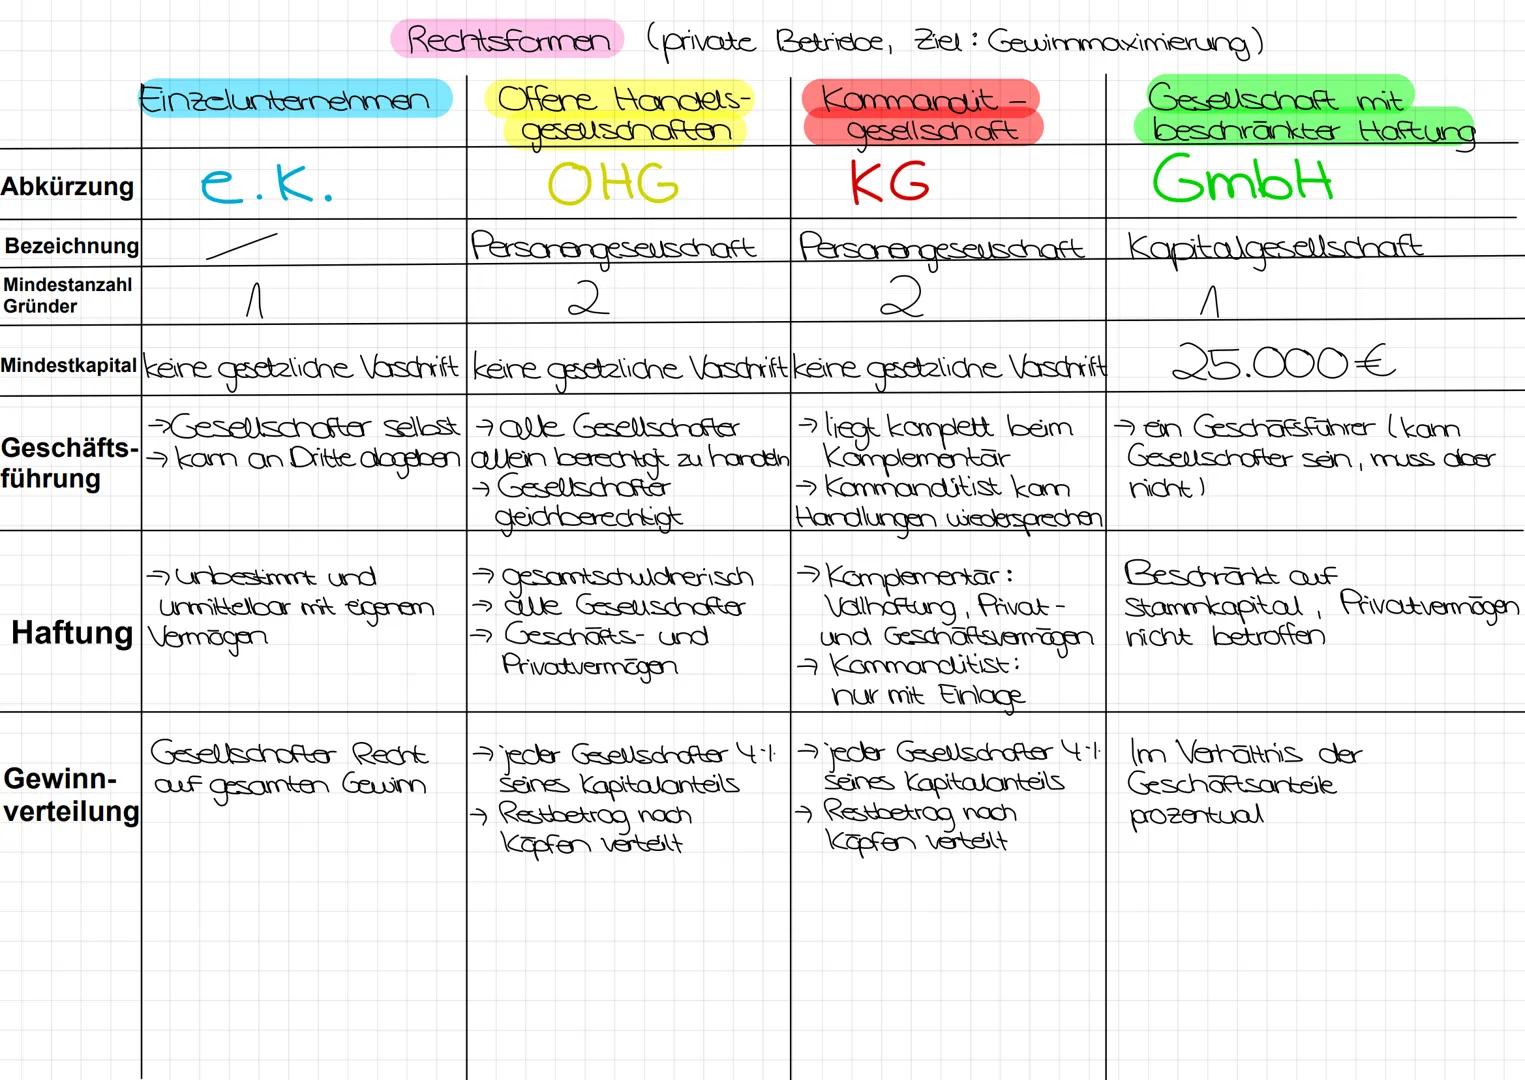 Rechtsformen (private Betriebe, Ziel: Gewinnmaximierung)
Einzelunternehmen
Offene Handels-
gesellschaften
Kommandit-
gesellschaft
Gesellschaft mit
beschränkter Haftung
Abkürzung
e.K.
OHG
KG
GmbH
Bezeichnung
Personengesellschaft
Personengesellschaft
Kapitalgesellschaft
Mindestanzahl
Gründer
1
2
2
1
Mindestkapital
keine gesetzliche Vorschrift
keine gesetzliche Vorschrift
keine gesetzliche Vorschrift
25.000€
Geschäfts-
führung
→Gesellschafter selbst
→ kann an Dritte abgeben
→ alle Gesellschafter
allein berechtigt zu handeln
→ Gesellschafter
gleichberechtigt
→ liegt komplett beim
Komplementär
→ Kommanditist kann
Handlungen wiedersprechen
→ ein Geschäfsführer (kann
Gesellschafter sein, muss aber
nicht)
Haftung
→ unbestimmt und
unmittelbar mit eigenem
Vermögen
→ gesamtschuldnerisch
→ alle Gesellschafter
→ Geschäfts- und
Privatvermögen
→ Komplementär:
Vollhaftung, Privat-
und Geschäftsvermögen
→ Kommanditist:
nur mit Einlage
Beschränkt auf
Stammkapital, Privatvermögen
nicht betroffen
Gewinn-
verteilung
Gesellschafter Recht
auf gesamten Gewinn
→ jeder Gesellschafter 4%
seines Kapitalanteils
→ Restbetrag nach
Köpfen verteilt
→ jeder Gesellschafter 4%
seines Kapitalanteils
→ Restbetrag nach
Köpfen verteilt
Im Verhältnis der
Geschäftsanteile
prozentual